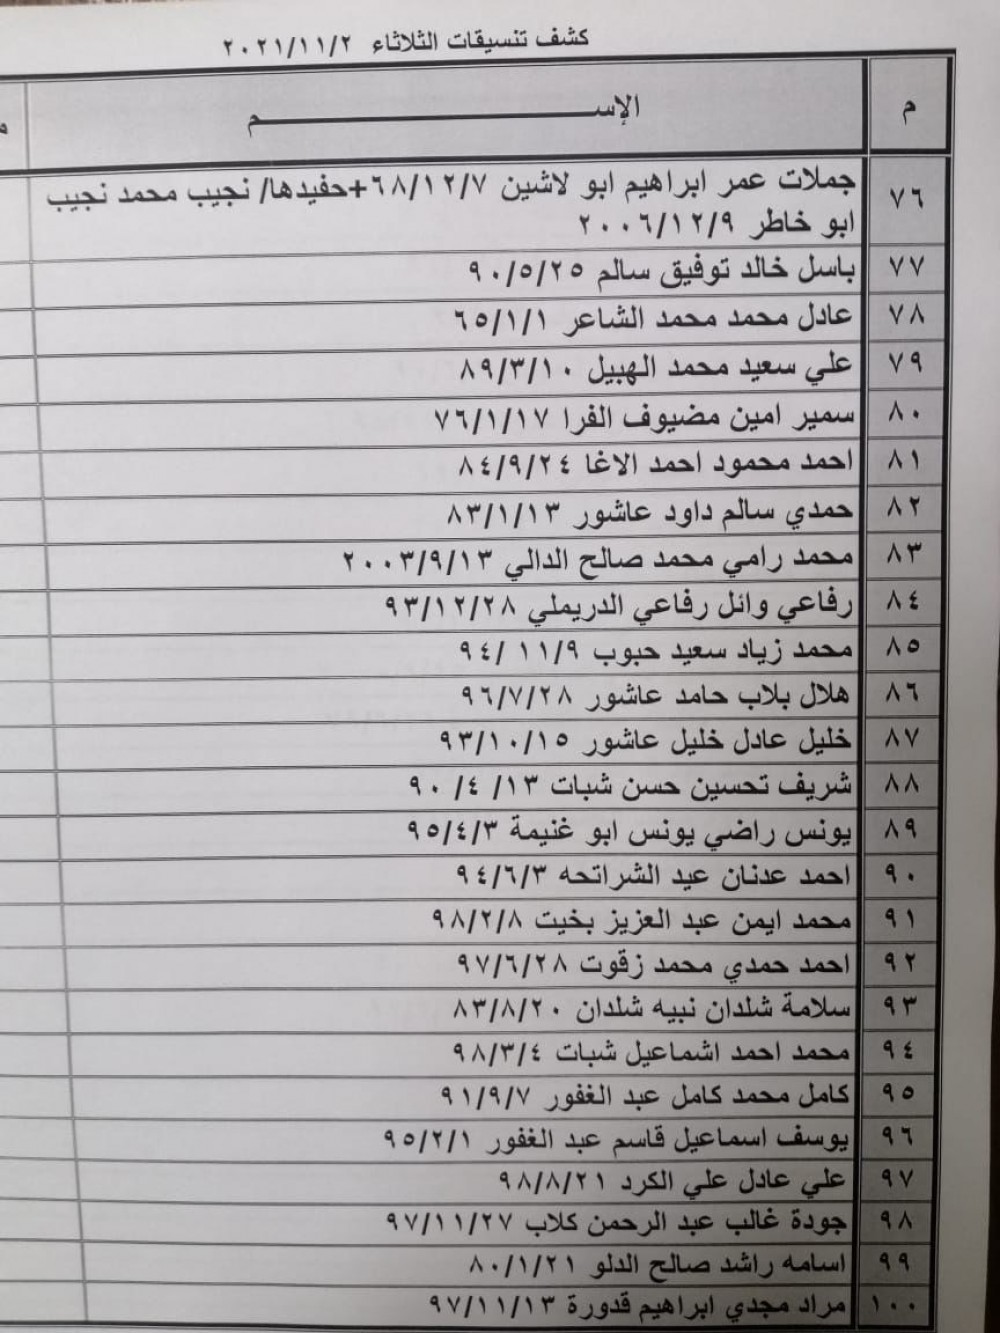 كشف تنسيقات الثلاثاء ٢٠٢١/١١/٢
م الإســــــــــم م
٧٦ جملات عمر ابراهيم ابو لاشين ٦٨/١٢/٧+حفيدها/ نجيب محمد نجيب
ابو خاطر ٢٠٠٦/١٢/٩
٧٧ باسل خالد توفيق سالم ٩٠/٥/٢٥
٧٨ عادل محمد محمد الشاعر ٦٥/١/١
٧٩ علي سعيد محمد الهبيل ٨٩/٣/١٠
٨٠ سمير امين مضيوف الفرا ٧٦/١/١٧
٨١ احمد محمود احمد الاغا ٨٤/٩/٢٤
٨٢ حمدي سالم داود عاشور ٨٣/١/١٣
٨٣ محمد رامي محمد صالح الدالي ٢٠٠٣/٩/١٣
٨٤ رفاعي وائل رفاعي الدريملي ٩٣/١٢/٢٨
٨٥ محمد زياد سعيد حبوب ٩٤/ ١١/٩
٨٦ هلال بلاب حامد عاشور ٩٦/٧/٢٨
٨٧ خليل عادل خليل عاشور ٩٣/١٠/١٥
٨٨ شريف تحسين حسن شبات ٩٠ /٤ /١٣
٨٩ يونس راضي يونس ابو غنيمة ٩٥/٤/٣
٩٠ احمد عدنان عيد الشراتحه ٩٤/٦/٣
٩١ محمد ايمن عبد العزيز بخيت ٩٨/٢/٨
٩٢ احمد حمدي محمد زقوت ٩٧/٦/٢٨
٩٣ سلامة شلدان نبيه شلدان ٨٣/٨/٢٠
٩٤ محمد احمد اشماعيل شبات ٩٨/٣/٤
٩٥ كامل محمد كامل عبد الغفور ٩١/٩/٧
٩٦ يوسف اسماعيل قاسم عبد الغفور ٩٥/٢/١
٩٧ علي عادل علي الكرد ٩٨/٨/٢١
٩٨ جودة غالب عبد الرحمن كلاب ٩٧/١١/٢٧
٩٩ اسامه راشد صالح الدلو ٨٠/١/٢١
١٠٠ مراد مجدي ابراهيم قدورة ٩٧/١١/١٣